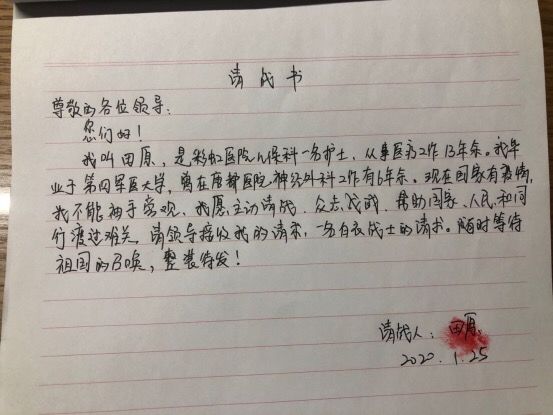 请战书
尊敬的各位领导：
您们好！
我叫田原，是彩虹医院儿保科一名护士，从事医疗工作13年余。我毕
业于第四军医大学，曾在唐都医院神经外科工作有6年余。现在国家有疫情，
我不能袖手旁观，我愿主动请战，众志成城，帮助国家、人民和同
们渡过难关，请领导接收我的请求，一名白衣战士的请求。随时等待
祖国的召唤，整装待发！
请战人：田原
2020.1.25